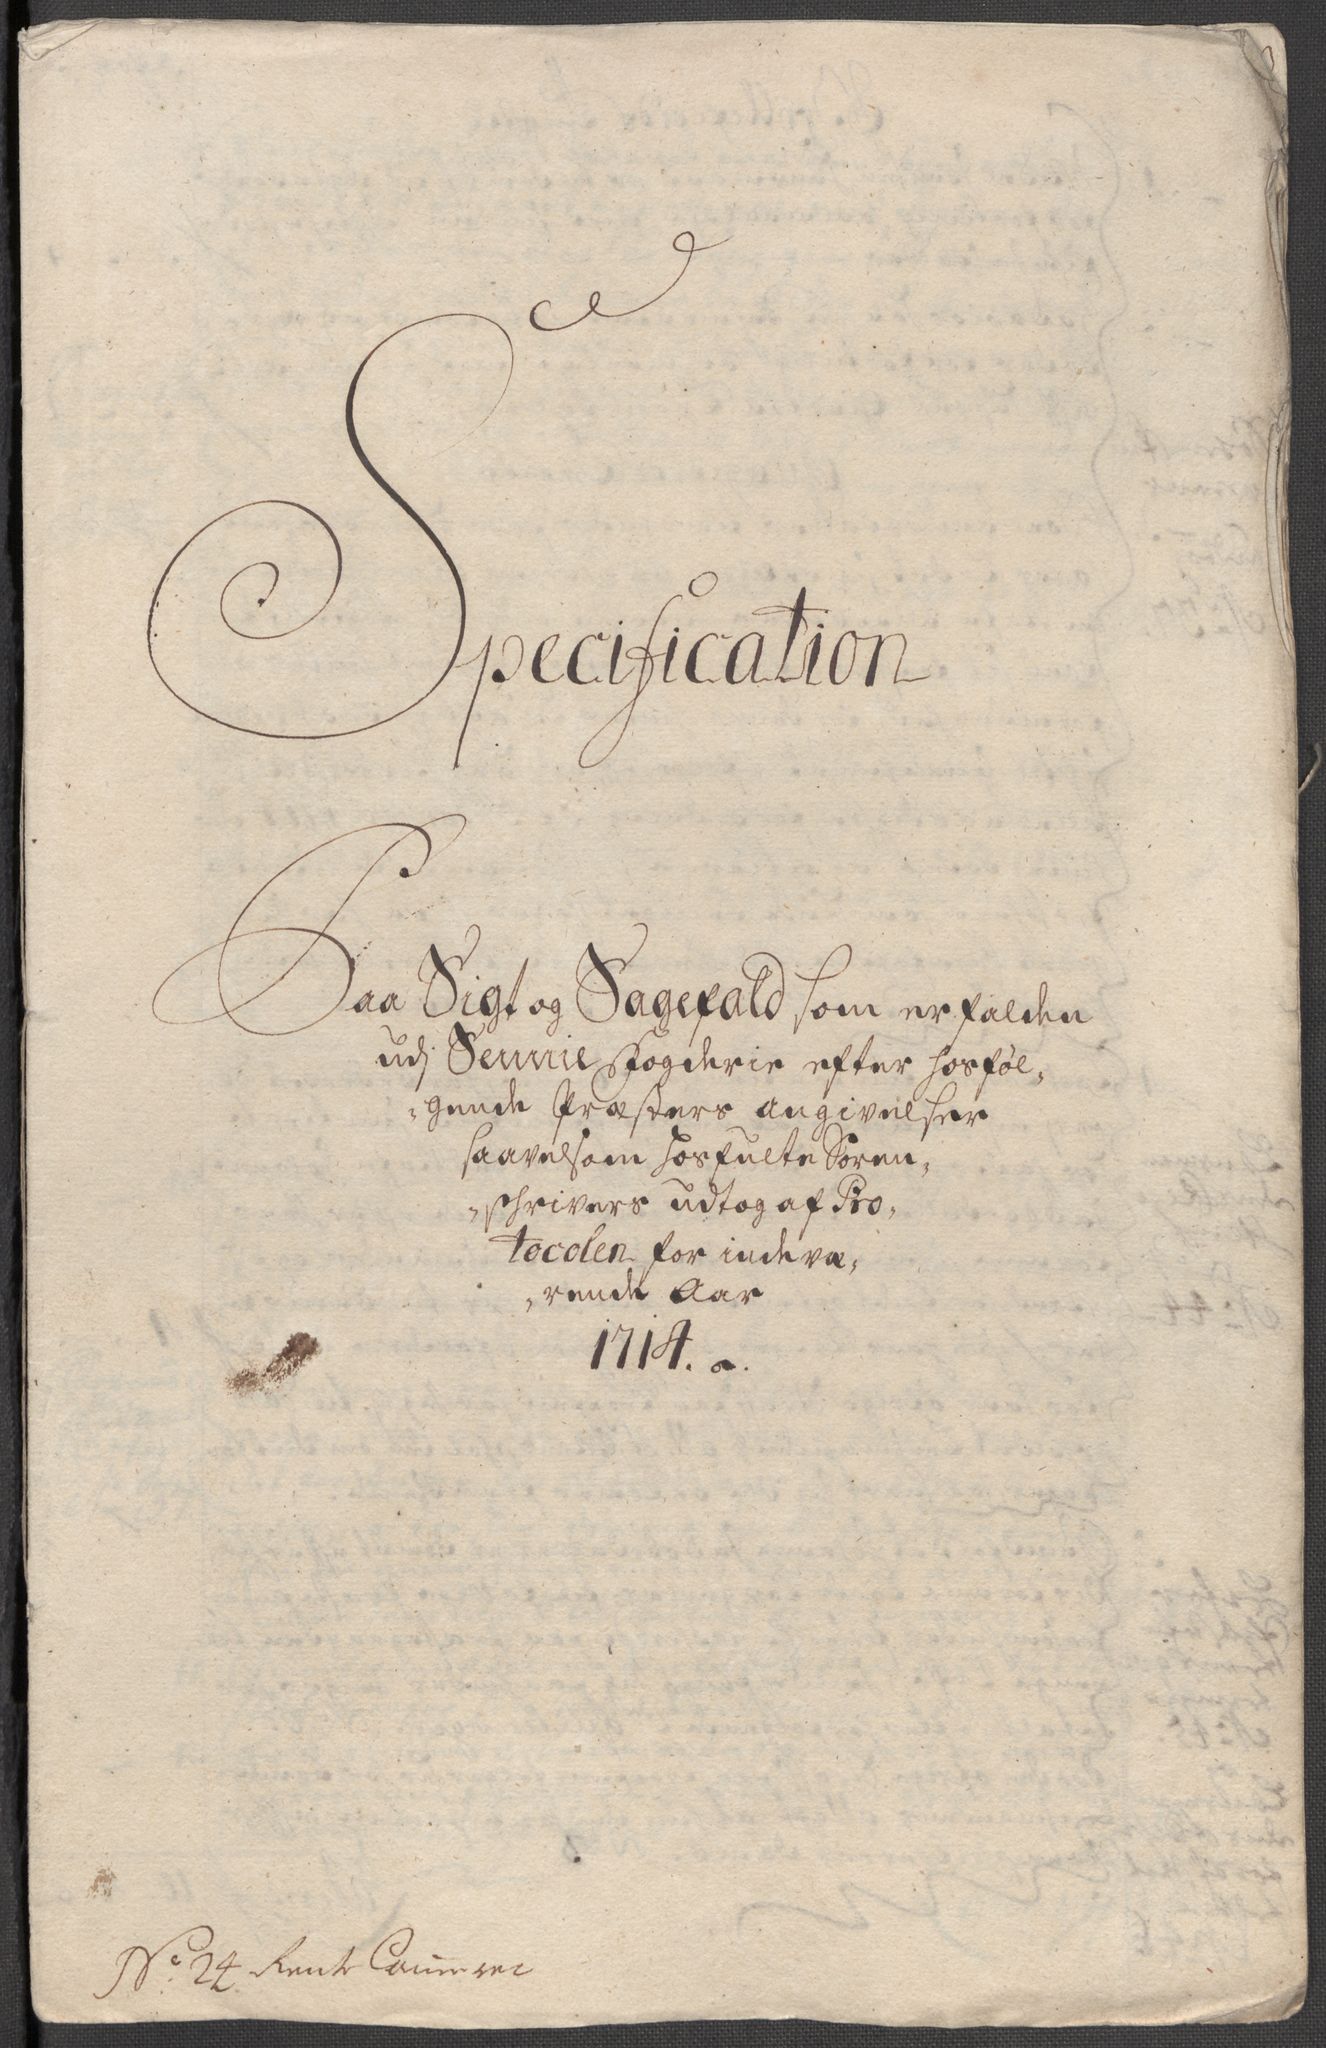 Specification
Paa Sigt og Sagefald som er falden
udj Sennie fogderie efter hosføl,
,gende Præsters angivelser
saavelsom hosfulte Soren,
,schrivers udtog af Pro,
tocolen for indevæ,
,rende Aar
1714.
No. 24 Rente Cammeret